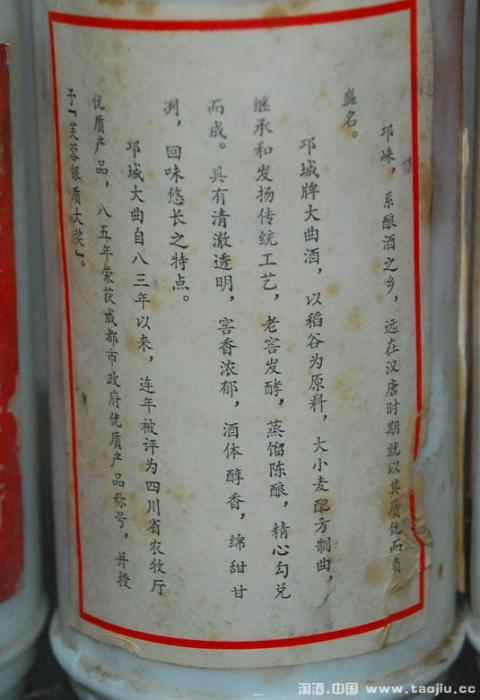 邛崃，系酿酒之乡，远在汉唐时期就以其质优而负
盛名。
邛城牌大曲酒，以稻谷为原料，大小麦配方制曲，
继承和发扬传统工艺，老窖发酵，蒸馏陈酿，精心勾兑
而成。具有清澈透明，窖香浓郁，酒体醇香，绵甜甘
洌，回味悠长之特点。
邛城大曲自八三年以来，连年被评为四川省农牧厅
优质产品，八五年荣获成都市政府优质产品称号，并授
于“芙蓉银质大奖”。
淘酒.中国 www.taojiu.cc